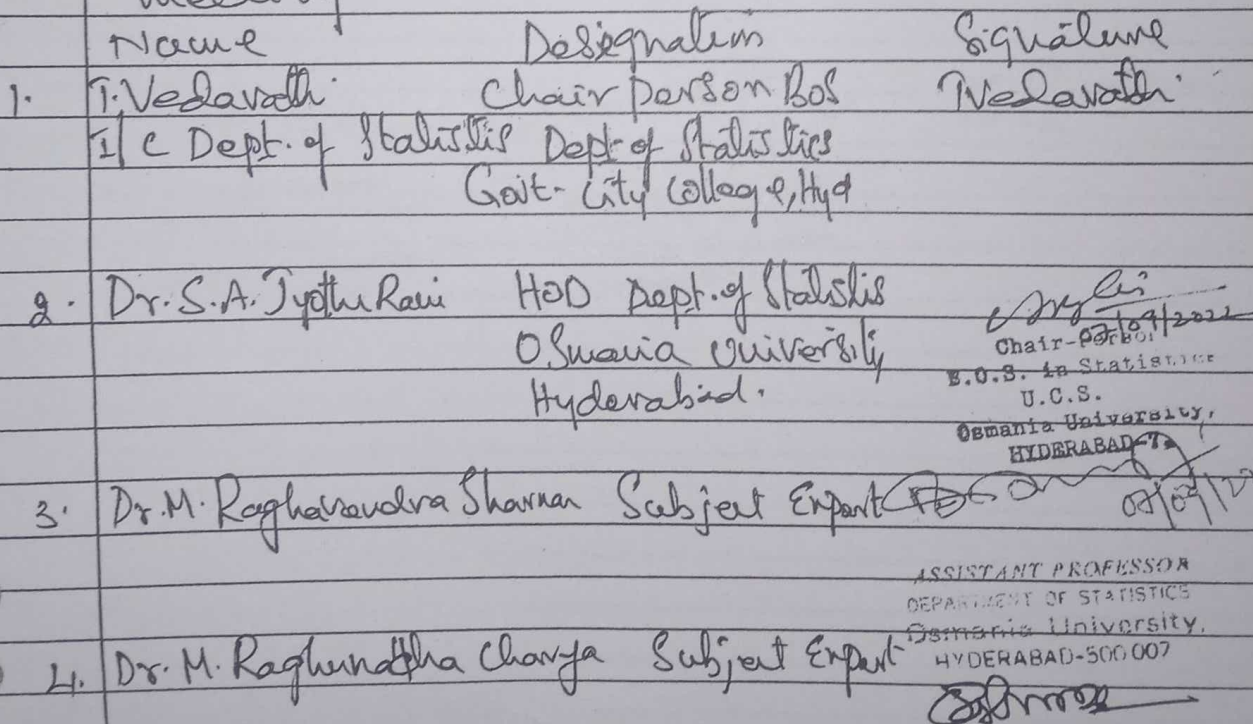 Name Designation Signature
1. T. Vedavathi Chair Person BoS TVedavathi
I/C Dept. of Statistics Dept of Statistics
Govt. City College, Hyd
2. Dr. S.A. Jyothi Rani HOD Dept. of Statistics
Osmania University
Hyderabad.
Chair-Person
B.O.S. in Statistics
U.C.S.
Osmania University,
HYDERABAD-7.
3. Dr. M. Raghavendra Sharma Subject Expert
ASSISTANT PROFESSOR
DEPARTMENT OF STATISTICS
Osmania University,
HYDERABAD-500 007
4. Dr. M. Raghunadha Charya Subject Expert